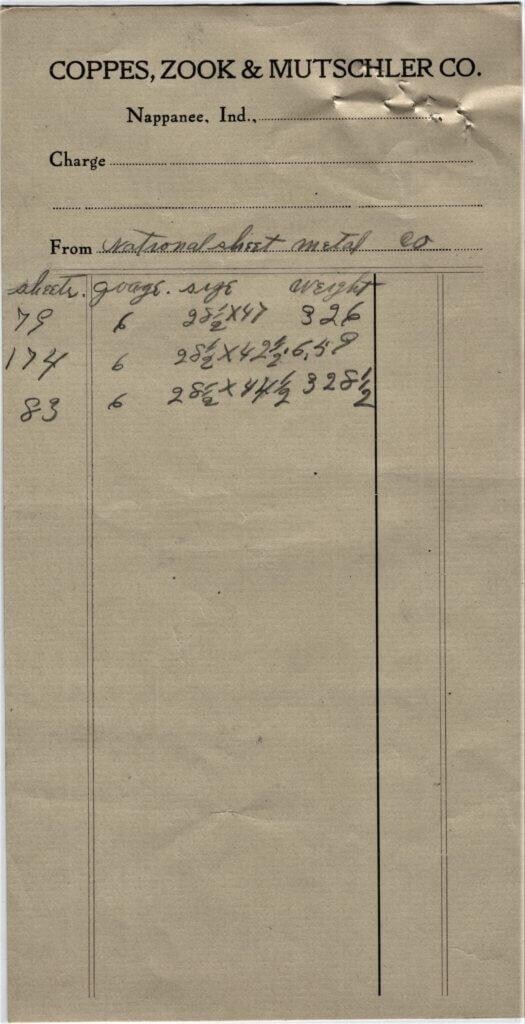 COPPES, ZOOK & MUTSCHLER CO.
Nappanee, Ind.,
Charge
From National sheet metal Co
sheets. guage. size weight
79 6 28½ X 47 326
174 6 28½ X 42½ 658
83 6 28½ X 44½ 328½